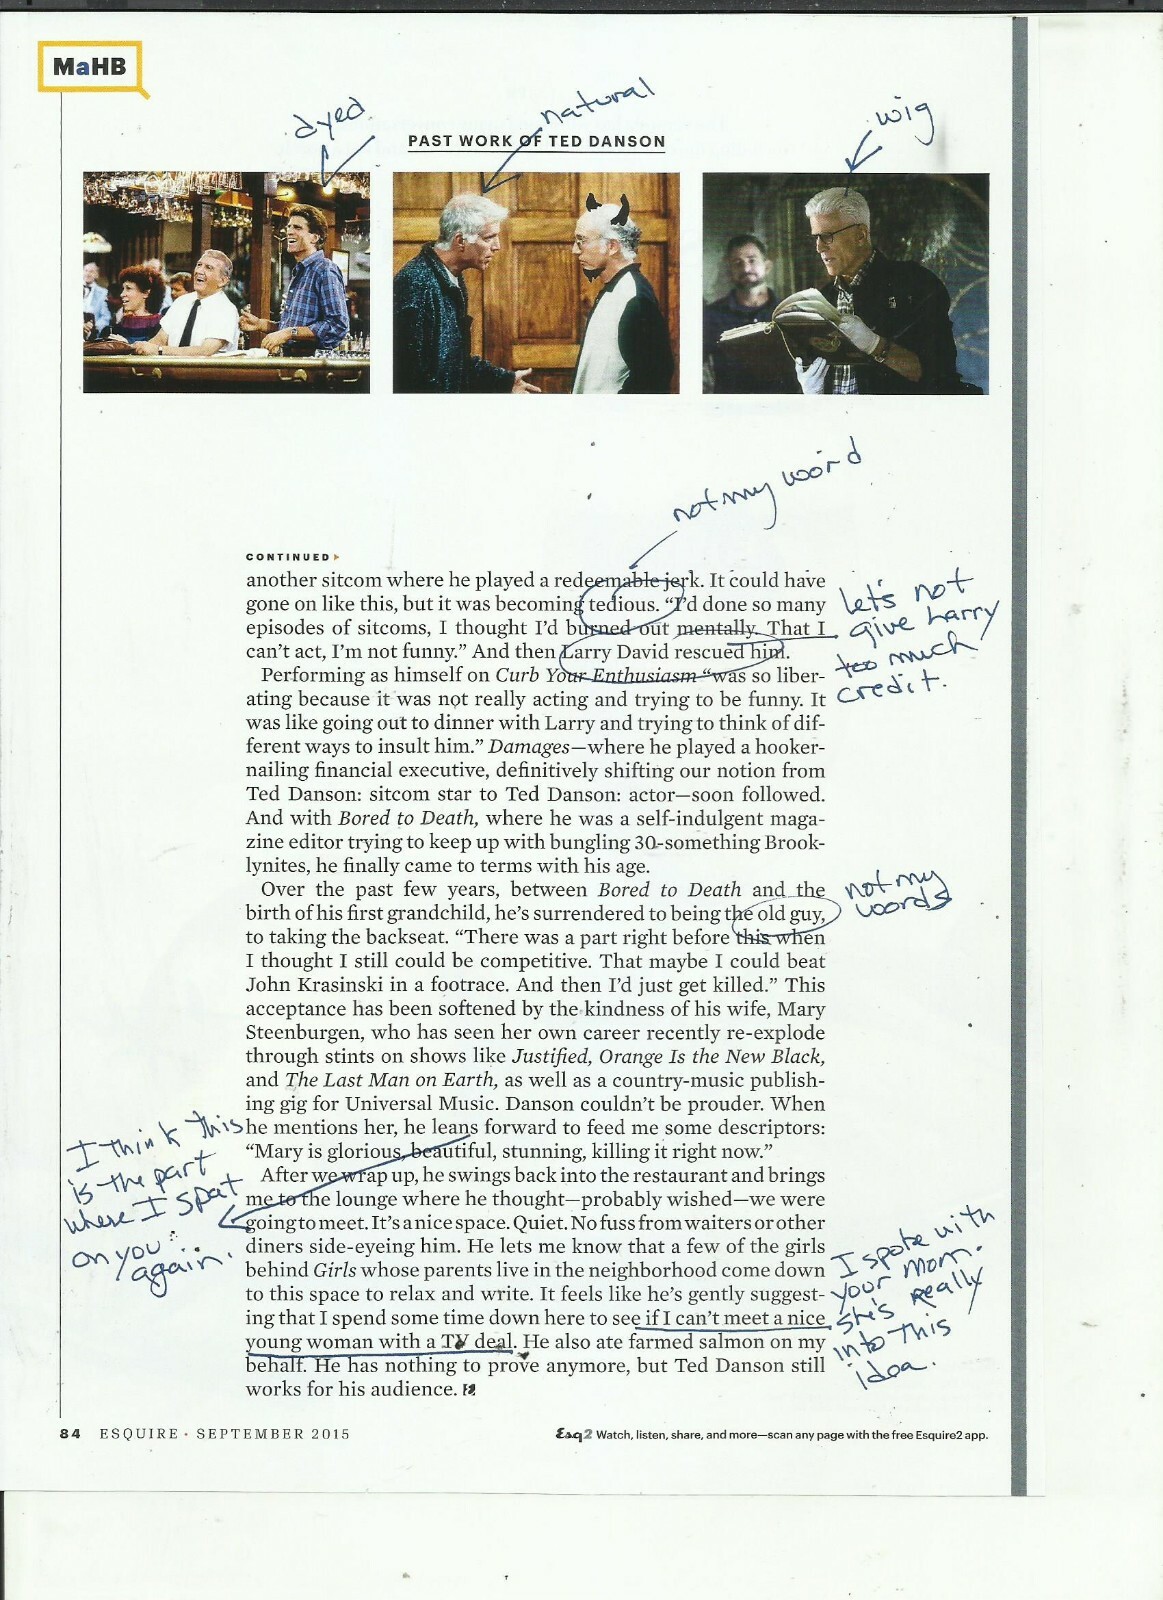 MaHB
dyed
natural
wig
PAST WORK OF TED DANSON
not my word
CONTINUED
another sitcom where he played a redeemable jerk. It could have
gone on like this, but it was becoming tedious. “I’d done so many
episodes of sitcoms, I thought I’d burned out mentally. That I
can’t act, I’m not funny.” And then Larry David rescued him.
let's not
give Larry
too much
credit.
Performing as himself on Curb Your Enthusiasm “was so liber-
ating because it was not really acting and trying to be funny. It
was like going out to dinner with Larry and trying to think of dif-
ferent ways to insult him.” Damages—where he played a hooker-
nailing financial executive, definitively shifting our notion from
Ted Danson: sitcom star to Ted Danson: actor—soon followed.
And with Bored to Death, where he was a self-indulgent maga-
zine editor trying to keep up with bungling 30-something Brook-
lynites, he finally came to terms with his age.
Over the past few years, between Bored to Death and the
birth of his first grandchild, he’s surrendered to being the old guy,
to taking the backseat. “There was a part right before this when
I thought I still could be competitive. That maybe I could beat
John Krasinski in a footrace. And then I’d just get killed.” This
acceptance has been softened by the kindness of his wife, Mary
Steenburgen, who has seen her own career recently re-explode
through stints on shows like Justified, Orange Is the New Black,
and The Last Man on Earth, as well as a country-music publish-
ing gig for Universal Music. Danson couldn’t be prouder. When
he mentions her, he leans forward to feed me some descriptors:
“Mary is glorious, beautiful, stunning, killing it right now.”
not my
words
I think this
is the part
where I spat
on you
again.
After we wrap up, he swings back into the restaurant and brings
me to the lounge where he thought—probably wished—we were
going to meet. It’s a nice space. Quiet. No fuss from waiters or other
diners side-eyeing him. He lets me know that a few of the girls
behind Girls whose parents live in the neighborhood come down
to this space to relax and write. It feels like he’s gently suggest-
ing that I spend some time down here to see if I can’t meet a nice
young woman with a TV deal. He also ate farmed salmon on my
behalf. He has nothing to prove anymore, but Ted Danson still
works for his audience.
I spoke with
your mom.
she's really
into this
idea.
84 ESQUIRE · SEPTEMBER 2015
Esq2 Watch, listen, share, and more—scan any page with the free Esquire2 app.